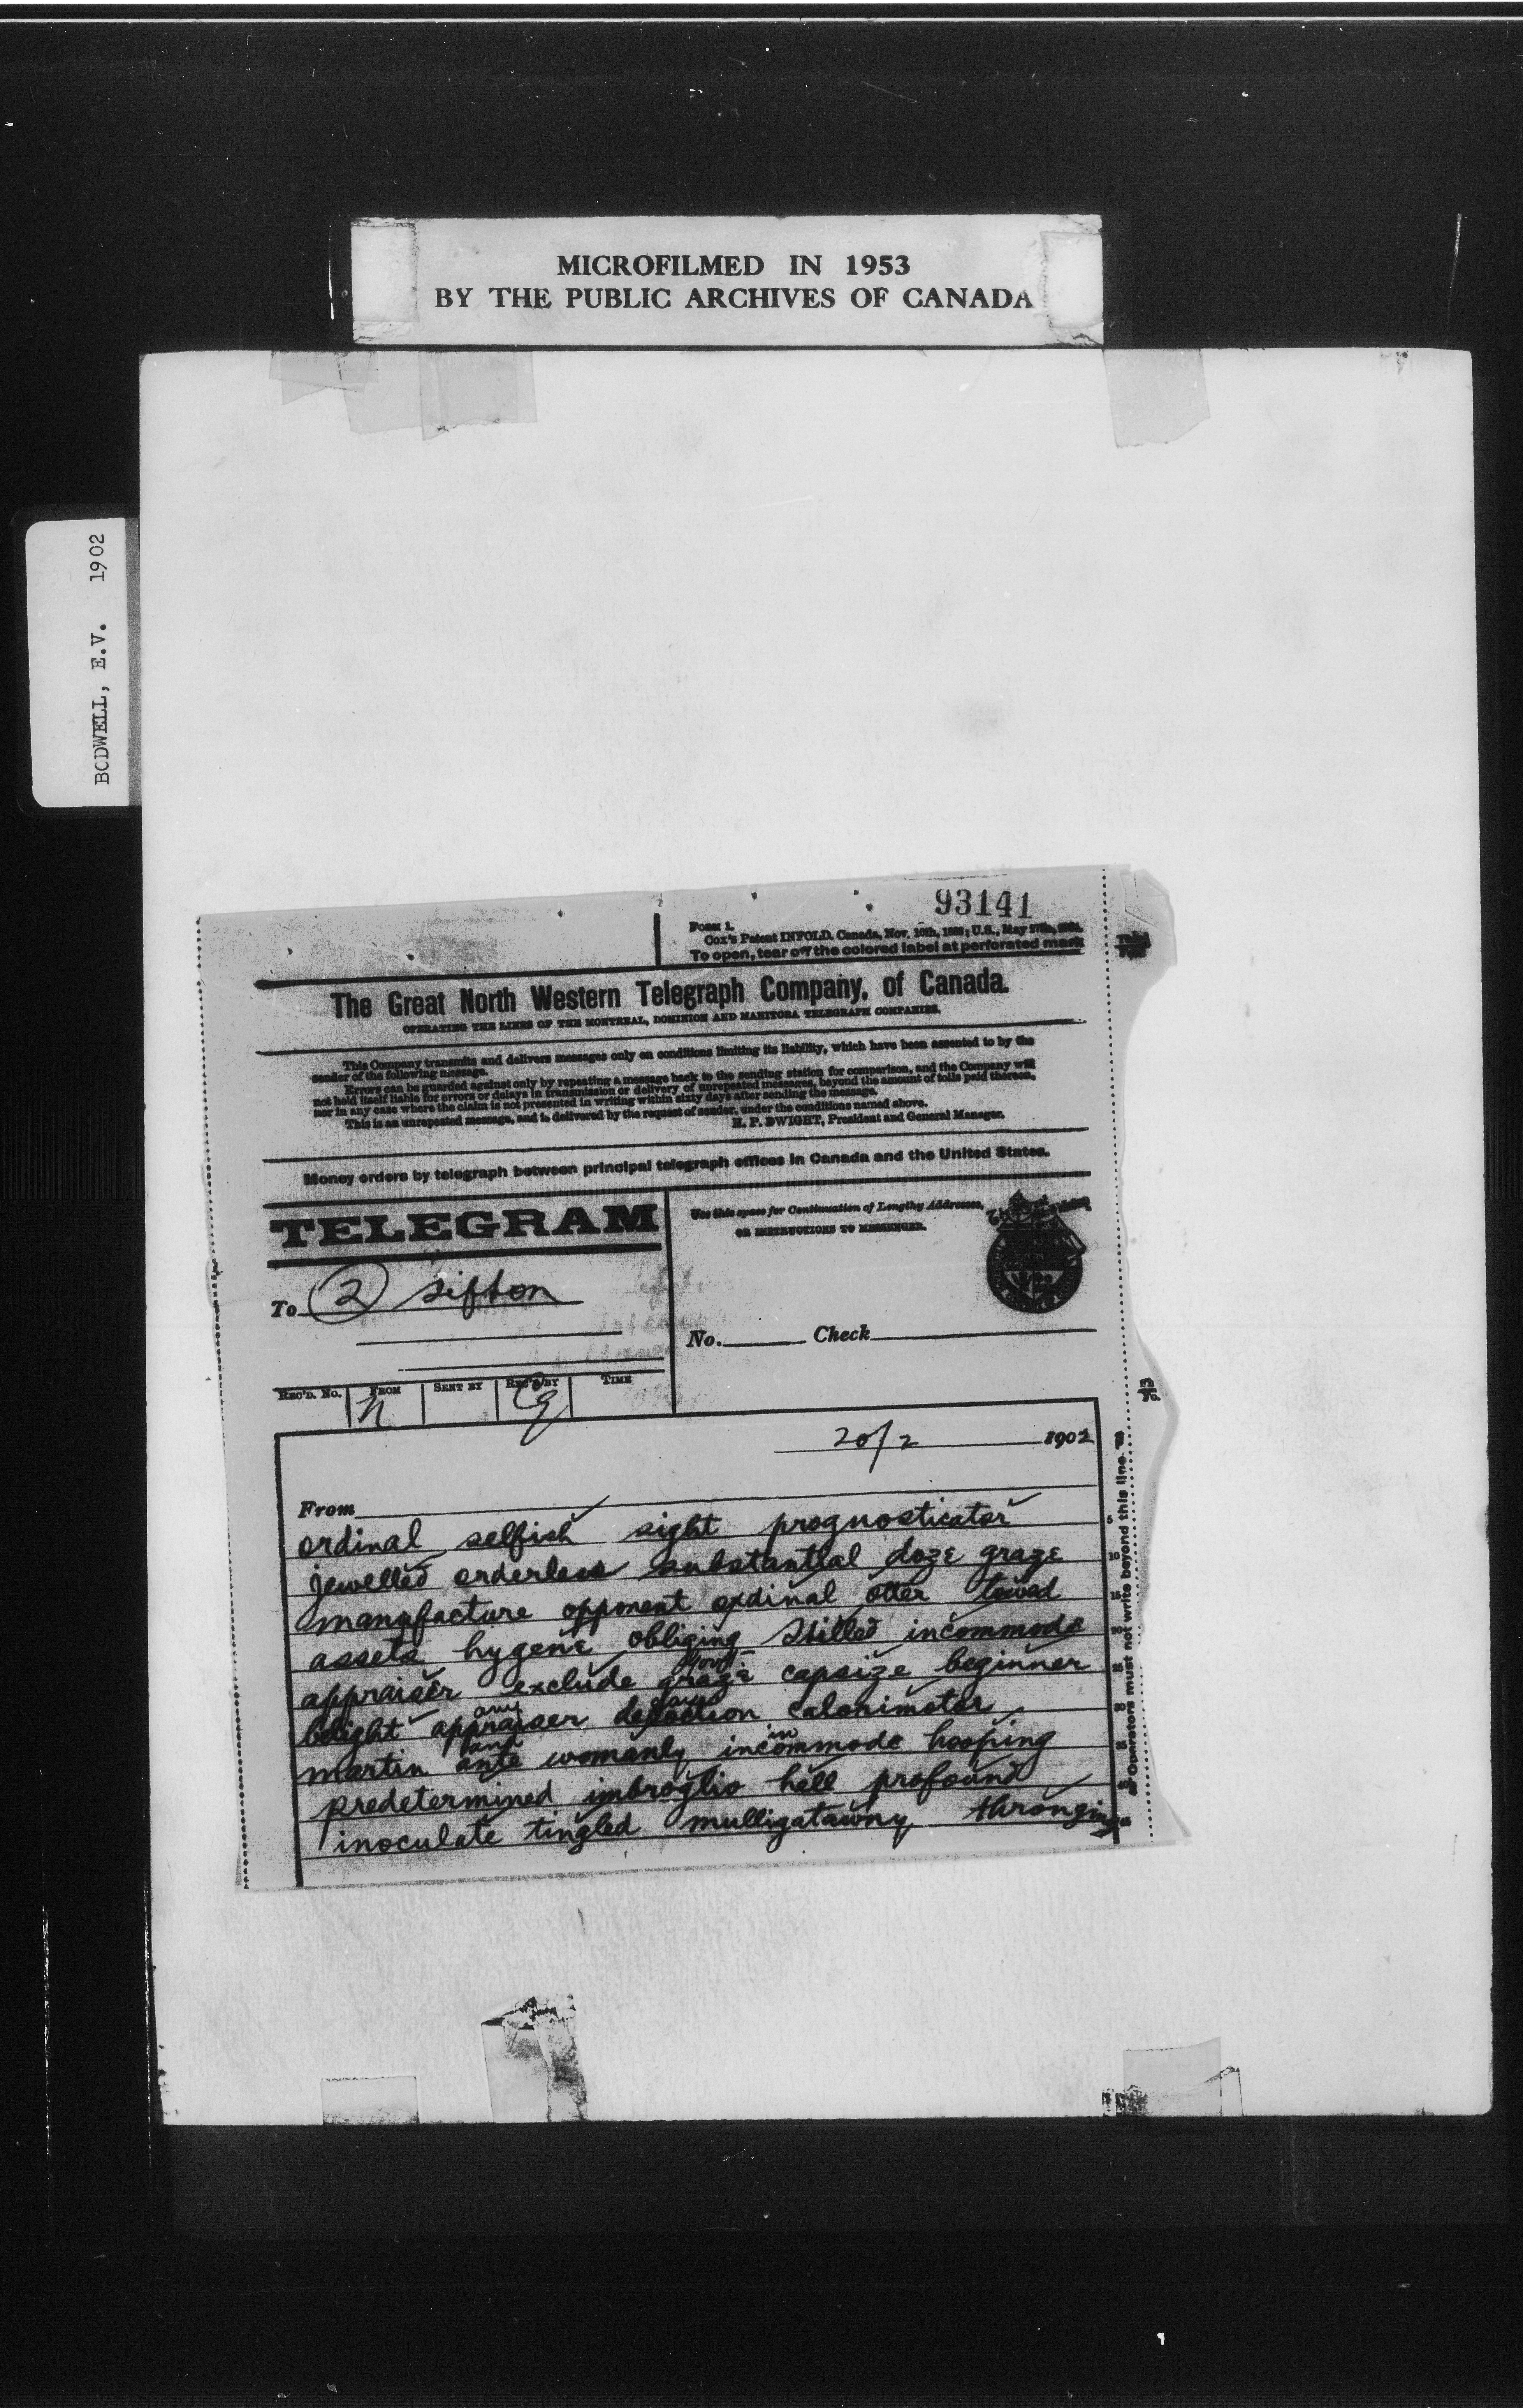 MICROFILMED IN 1953
BY THE PUBLIC ARCHIVES OF CANADA
BODWELL, E.V. 1902
93141
FORM 1.
Cox's Patent INFOLD. Canada, Nov. 10th, U.S., May
To open, tear off the colored label at perforated mark
The Great North Western Telegraph Company, of Canada.
OPERATING THE LINES OF THE MONTREAL, DOMINION AND MANITOBA TELEGRAPH COMPANIES.
This Company transmits and delivers messages only on conditions limiting its liability, which have been assented to by the
sender of the following message.
Errors can be guarded against only by repeating a message back to the sending station for comparison, and the Company will
not hold itself liable for errors or delays in transmission or delivery of unrepeated messages, beyond the amount of tolls paid thereon,
nor in any case where the claim is not presented in writing within sixty days after sending the message.
This is an unrepeated message, and is delivered by the request of sender, under the conditions named above.
H. P. DWIGHT, President and General Manager.
Money orders by telegraph between principal telegraph offices in Canada and the United States.
TELEGRAM
Use this space for Continuation of Lengthy Addresses,
OR INSTRUCTIONS TO MESSENGER.
To 2 Sifton
No. Check
REC'D. No. FROM SENT BY REC'D BY TIME
n
20/2 1902
From
ordinal selfish sight prognosticator
jewelled orderless substantial doze graze
manufacture opponent ordinal otter
assets hygene obliging stilled incommode
govt
appraiser exclude graze capsize beginner
any
appraiser calorimeter
and in
martin ante womanly incommode hooping
predetermined imbroglio hell profound
inoculate tingled mulligatawny thronging
5
10
15
20
25
30
35
40
45
Operators must not write beyond this line